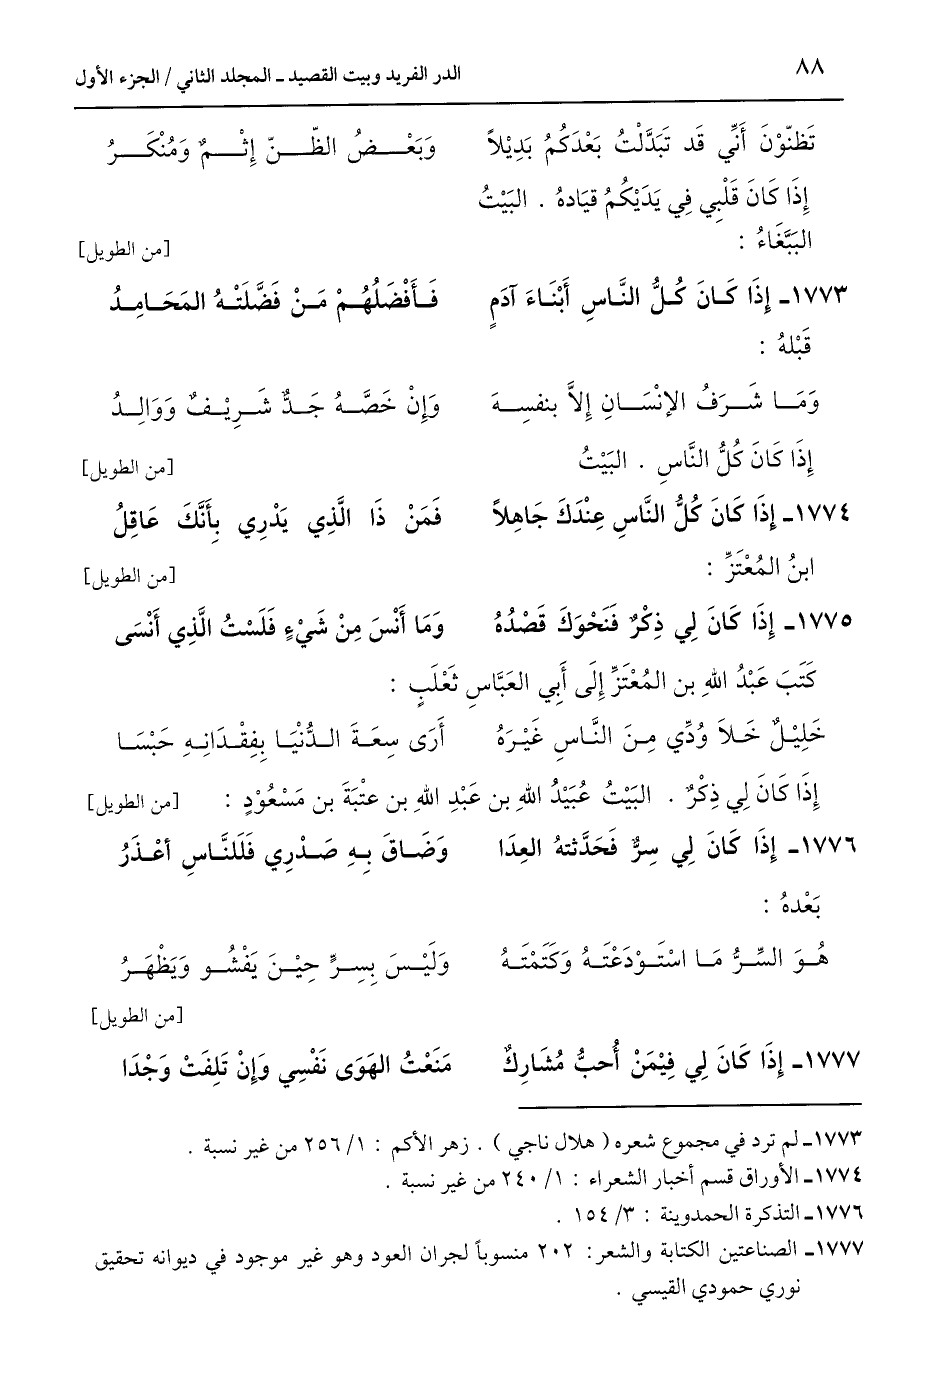 ٨٨ الدر الفريد وبيت القصيد ـ المجلد الثاني / الجزء الأول
تَظنّوْنَ أَنِّي قَد تَبَدَّلْتُ بَعْدَكُمُ بَدِيْلاً وَبَعْضُ الظَّنّ إِثْمٌ وَمُنْكَرُ
إِذَا كَانَ قَلْبِي فِي يَدَيْكُمُ قيَادهُ . البَيْتُ
البَبَّغَاءُ : [من الطويل]
١٧٧٣ـ إِذَا كَانَ كُلُّ النَّاسِ أَبْنَاءَ آدَمٍ فَأَفْضَلُهُمْ مَنْ فَضَّلَتْهُ المَحَامِدُ
قَبْلهُ :
وَمَا شَرَفُ الإنْسَانِ إِلاَّ بنفسِهَ وَإِنْ خَصَّهُ جَدٌّ شَرِيْفٌ وَوَالِدُ
إِذَا كَانَ كُلُّ النَّاسِ . البَيْتُ [من الطويل]
١٧٧٤ـ إِذَا كَانَ كُلُّ النَّاسِ عِنْدَكَ جَاهِلاً فَمَنْ ذَا الَّذِي يَدْرِي بِأَنَّكَ عَاقِلُ
ابنُ المُعْتَزِّ : [من الطويل]
١٧٧٥ـ إِذَا كَانَ لِي ذِكْرٌ فَنَحْوَكَ قَصْدُهُ وَمَا أَنْسَ مِنْ شَيْءٍ فَلَسْتُ الَّذِي أَنْسَى
كَتَبَ عَبْدُ اللهِ بن المُعْتَزِّ إِلَى أَبِي العَبَّاسِ ثَعْلَبٍ :
خَلِيْلٌ خَلاَ وُدِّي مِنَ النَّاسِ غَيْرَهُ أَرَى سِعَةَ الدُّنْيَا بِفِقْدَانِهِ حَبْسَا
إِذَا كَانَ لِي ذِكْرٌ . البَيْتُ عُبَيْدُ اللهِ بن عَبْدِ اللهِ بن عتْبَةَ بن مَسْعُوْدٍ : [من الطويل]
١٧٧٦ـ إِذَا كَانَ لِي سِرٌّ فَحَدَّثتهُ العِدَا وَضَاقَ بِهِ صَدْرِي فَلَلنَّاسِ أعْذَرُ
بَعْدهُ :
هُوَ السِّرُّ مَا اسْتَوْدَعْتَهُ وَكَتَمْتَهُ وَلَيْسَ بِسِرٍّ حِيْنَ يَفْشُو وَيَظْهَرُ
[من الطويل]
١٧٧٧ـ إِذَا كَانَ لِي فِيْمَنْ أُحبُّ مُشَارِكٌ مَنَعْتُ الهَوَى نَفْسِي وَإِنْ تَلِفَتْ وَجْدَا
١٧٧٣ـ لم ترد في مجموع شعره ( هلال ناجي ) . زهر الأكم : ١/ ٢٥٦ من غير نسبة .
١٧٧٤ـ الأوراق قسم أخبار الشعراء : ١/ ٢٤٠ من غير نسبة .
١٧٧٦ـ التذكرة الحمدوينة : ٣/ ١٥٤ .
١٧٧٧ـ الصناعتين الكتابة والشعر: ٢٠٢ منسوباً لجران العود وهو غير موجود في ديوانه تحقيق
نوري حمودي القيسي .